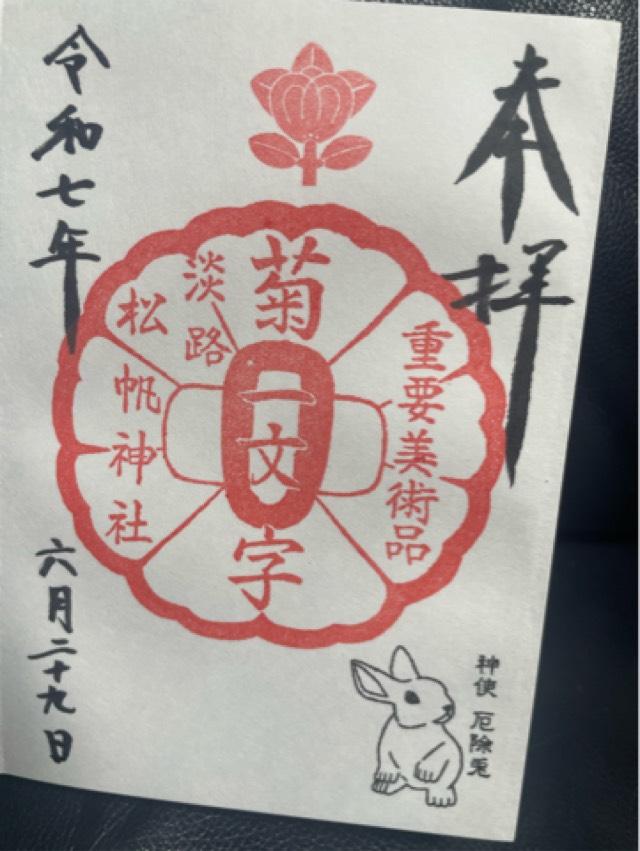 奉拝
重要美術品
菊一文字
淡路
松帆神社
令和七年
六月二十九日
神使 厄除兎